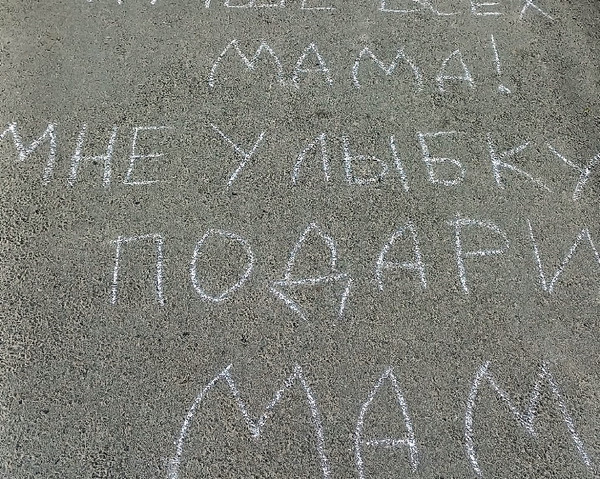 ВСЕХ
МАМА!
МНЕ УЛЫБКУ
ПОДАРИ
МАМ